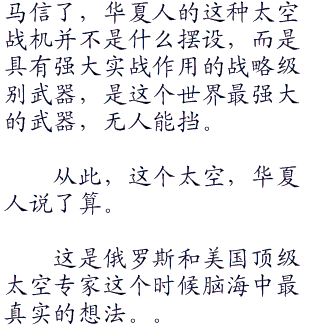 马信了，华夏人的这种太空
战机并不是什么摆设，而是
具有强大实战作用的战略级
别武器，是这个世界最强大
的武器，无人能挡。
从此，这个太空，华夏
人说了算。
这是俄罗斯和美国顶级
太空专家这个时候脑海中最
真实的想法。。